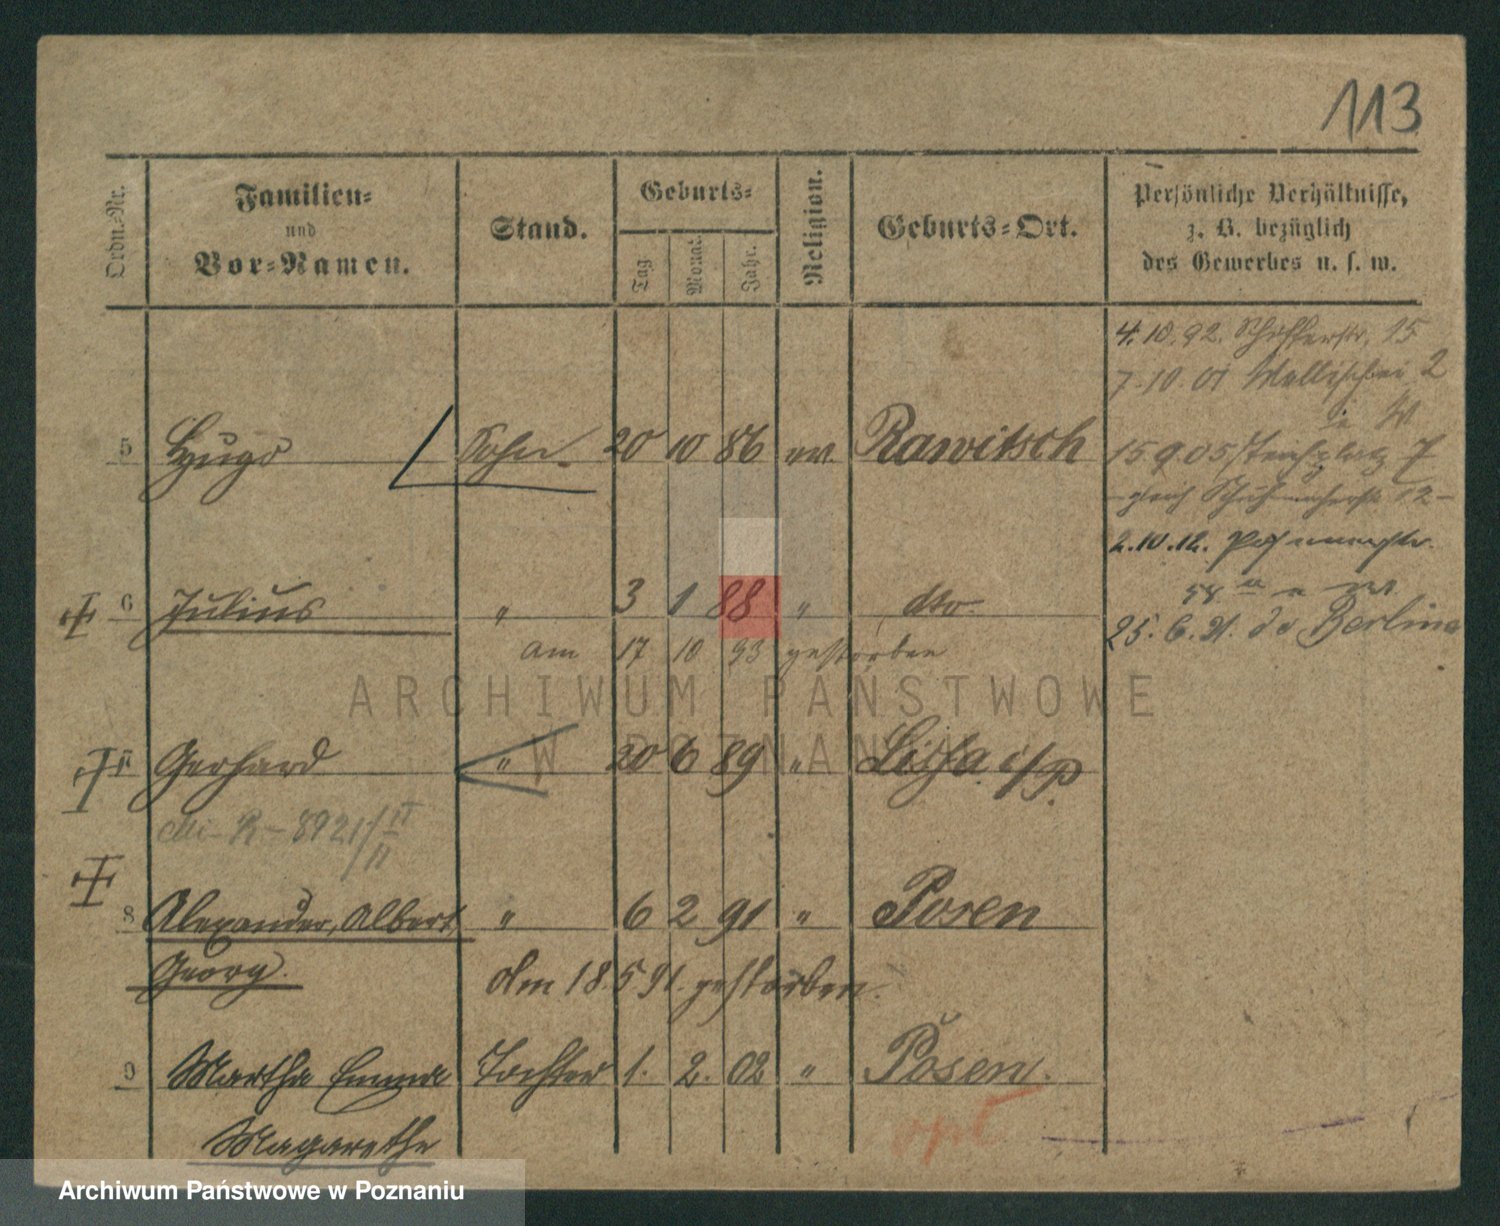 113
Ordn.-Nr.
Familien-
und
Vor-Namen.
Stand.
Geburts-
Tag
Monat.
Jahr.
Religion.
Geburts-Ort.
Persönliche Verhältnisse,
z. B. bezüglich
des Gewerbes u. s. w.
4.10.92. Schifferstr. 15
7.10.01 Wallischei 2
5 Hugo Sohn. 20 10 86 ev. Rawitsch
15 9 05 Teichplatz 7
gleich Schuhmacherstr. 12 -
2.10.12.
6 Julius " 3 1 88 " dto.
25.6.21. Berlin
am 17 10 93 gestorben
ARCHIWUM PAŃSTWOWE
W POZNANIU
Gerhard " 20 6 89 " Lissa i/P.
R - 8921/II
8 Alexander, Albert, " 6 2 91 " Posen
Georg. Am 18.5.91. gestorben.
9 Martha Emma Tochter 1. 2. 02 " Posen.
Magarethe
Archiwum Państwowe w Poznaniu